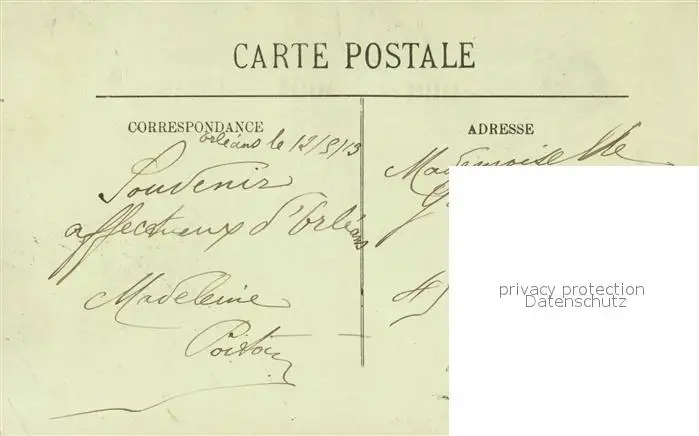 CARTE POSTALE
CORRESPONDANCE
Orléans le 12/5/13
Souvenir
affectueux d'Orléans
Madeleine
ADRESSE
Mademoiselle
privacy protection
Datenschutz